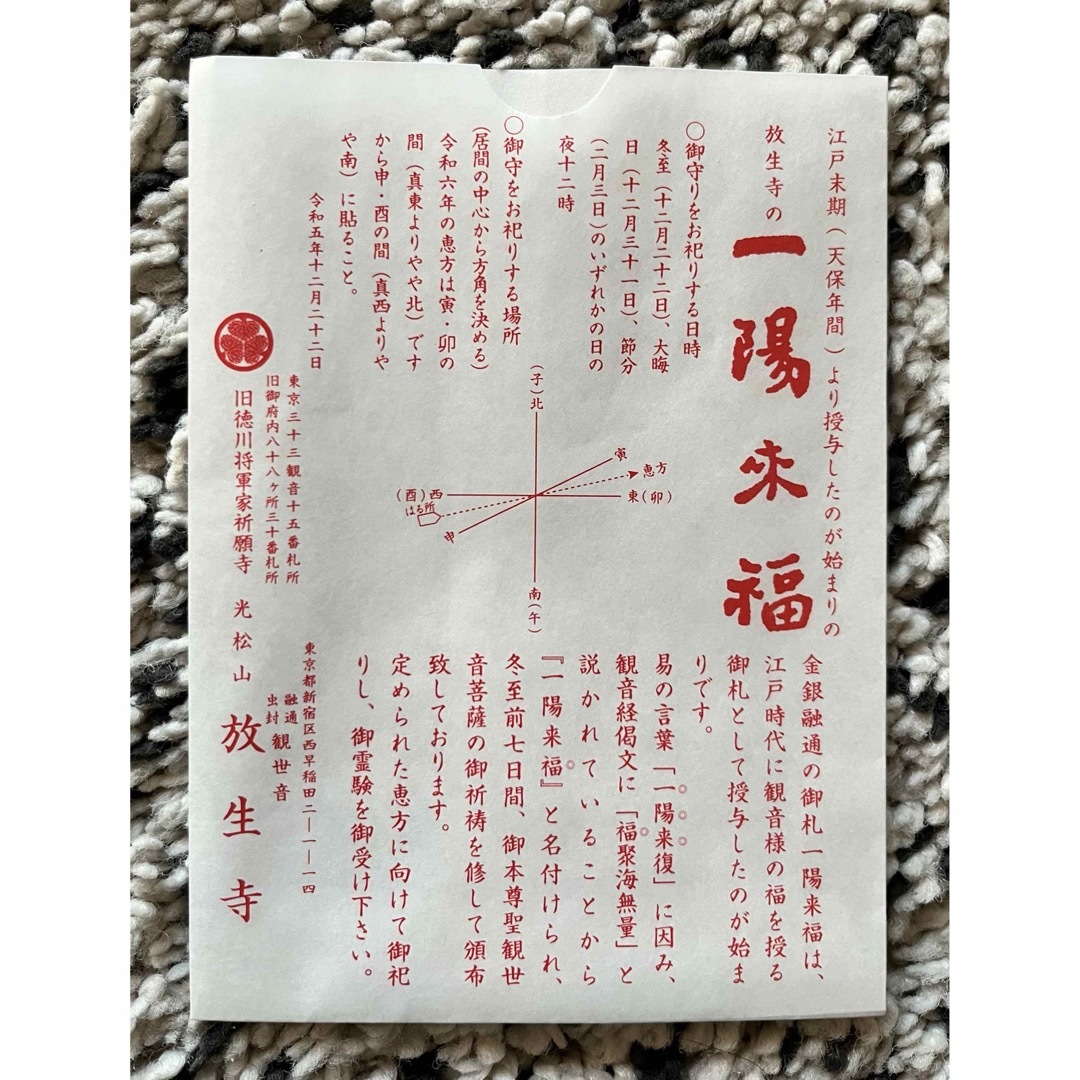 江戸末期（天保年間）より授与したのが始まりの
放生寺の一陽来福
○御守りをお祀りする日時
冬至（十二月二十二日）、大晦
日（十二月三十一日）、節分
（二月三日）のいずれかの日の
夜十二時
○御守をお祀りする場所
（居間の中心から方角を決める）
令和六年の恵方は寅・卯の
間（真東よりやや北）です
から申・酉の間（真西よりや
や南）に貼ること。
令和五年十二月二十二日
（子）北
寅
恵方
東（卯）
（酉）西
はる所
申
南（午）
金銀融通の御札一陽来福は、
江戸時代に観音様の福を授る
御札として授与したのが始ま
りです。
易の言葉「一陽来復」に因み、
観音経偈文に「福聚海無量」と
説かれていることから
『一陽来福』と名付けられ、
冬至前七日間、御本尊聖観世
音菩薩の御祈祷を修して頒布
致しております。
定められた恵方に向けて御祀
りし、御霊験を御受け下さい。
東京三十三観音十五番札所
旧御府内八十八ヶ所三十番札所
旧徳川将軍家祈願寺 光松山 放生寺
東京都新宿区西早稲田二―一―一四
融通
虫封
観世音